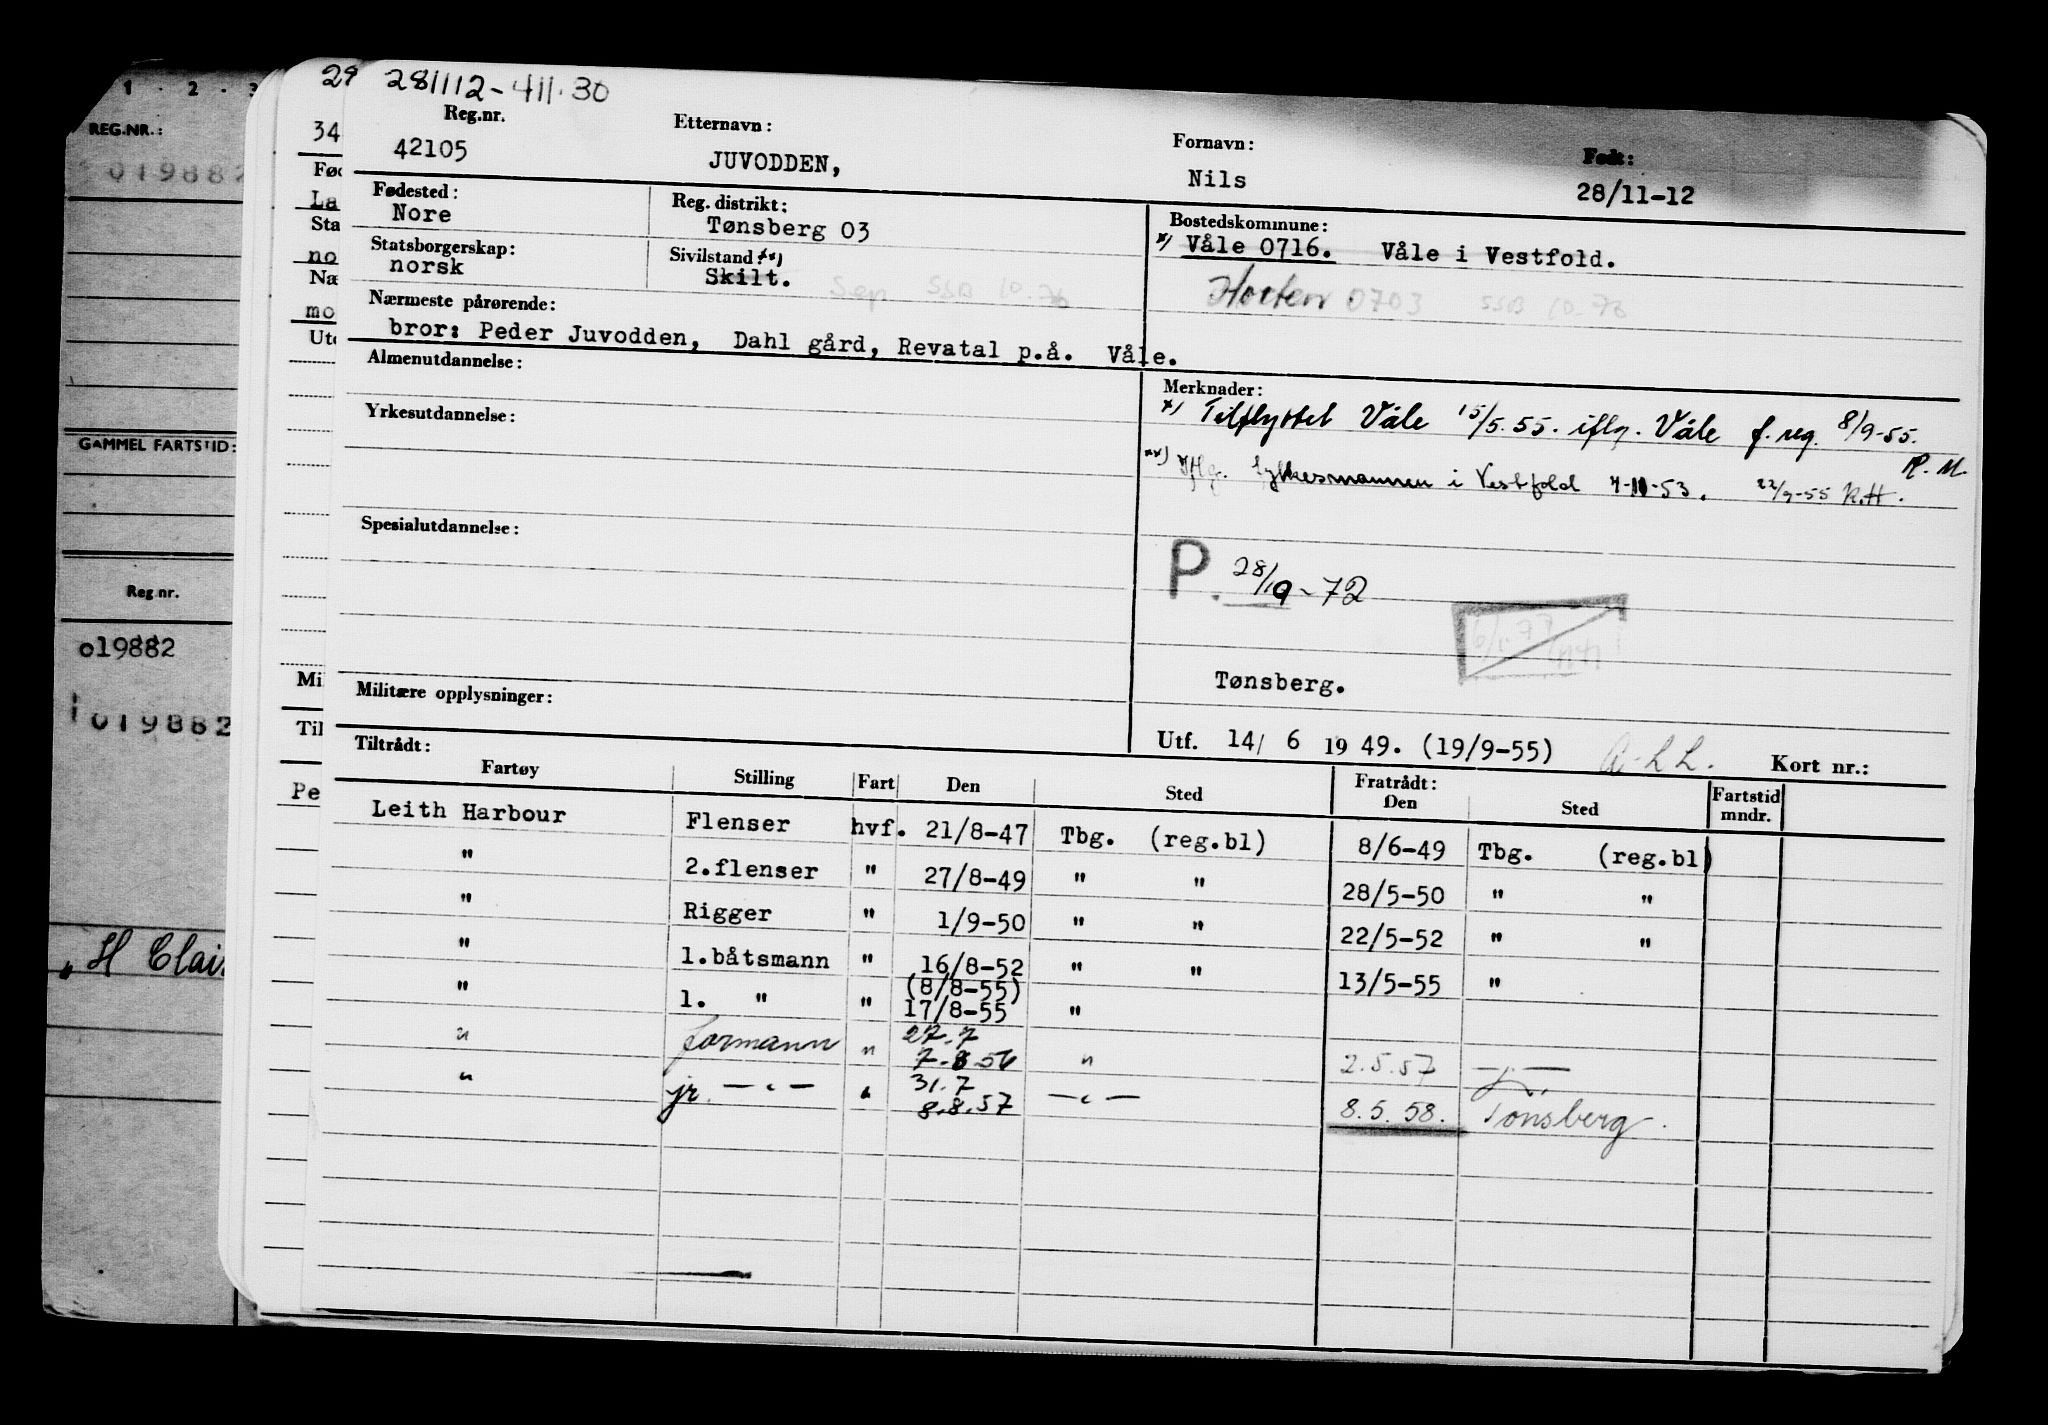 1 · 2 · 3
REG.NR.:
019882
GAMMEL FARTSTID:
Reg.nr.
o19882
019882
"H Clai
29
34
Fød
La
Sta
no
Næ
mo
Utd
Mil
Til
Pe
281112-411.30
Reg.nr. Etternavn: Fornavn: Født:
42105 JUVODDEN, Nils 28/11-12
Fødested: Reg. distrikt: Bostedskommune:
Nore Tønsberg 03 x) Våle 0716. Våle i Vestfold.
Statsborgerskap: Sivilstand: xx)
norsk Skilt. Sep SSB 10.76 Horten 0703 SSB 10.76
Nærmeste pårørende:
bror: Peder Juvodden, Dahl gård, Revatal p.å. Våle.
Almenutdannelse: Merknader:
x) Tilflyttet Våle 15/5.55. iflg. Våle f.reg. 8/9-55.
R.M.
Yrkesutdannelse:
xx) Iflg. fylkesmannen i Vestfold 7-10-53. 22/9-55 K.H.
Spesialutdannelse:
P. 28/10-72
Tønsberg.
Militære opplysninger:
Utf. 14/ 6 19 49. (19/9-55) Kort nr.:
Tiltrådt: Fratrådt:
Fartøy Stilling Fart Den Sted Den Sted Fartstid mndr.
Leith Harbour Flenser hvf. 21/8-47 Tbg. (reg.bl) 8/6-49 Tbg. (reg.bl)
" 2.flenser " 27/8-49 " " 28/5-50 " "
" Rigger " 1/9-50 " " 22/5-52 " "
" 1.båtsmann " 16/8-52 " " 13/5-55 "
" 1. " " (8/8-55) 17/8-55 "
" formann " 27.7 7.8.56 " 2.5.57 — " —
" jr. — " — " 31.7 8.8.57 — " — 8.5.58. Tønsberg.